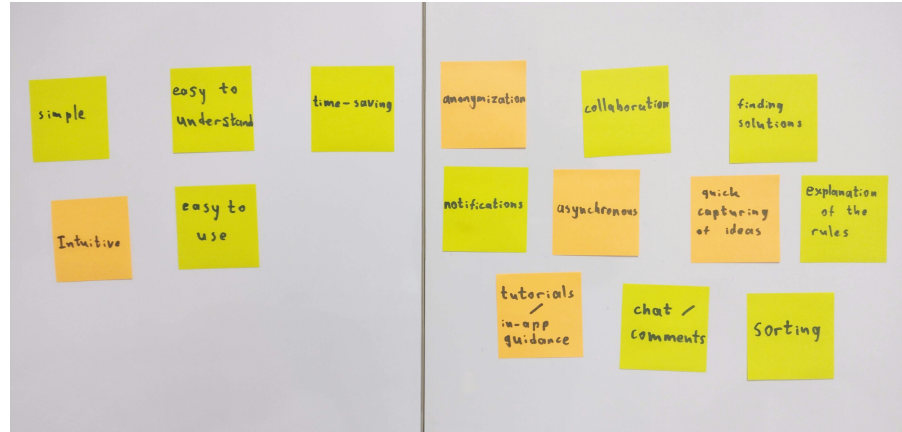 simple
easy to
understand
time-saving
Intuitive
easy to
use
anonymization
collaboration
finding
solutions
notifications
asynchronous
quick
capturing
of ideas
explanation
of the
rules
tutorials
/
in-app
guidance
chat /
comments
Sorting